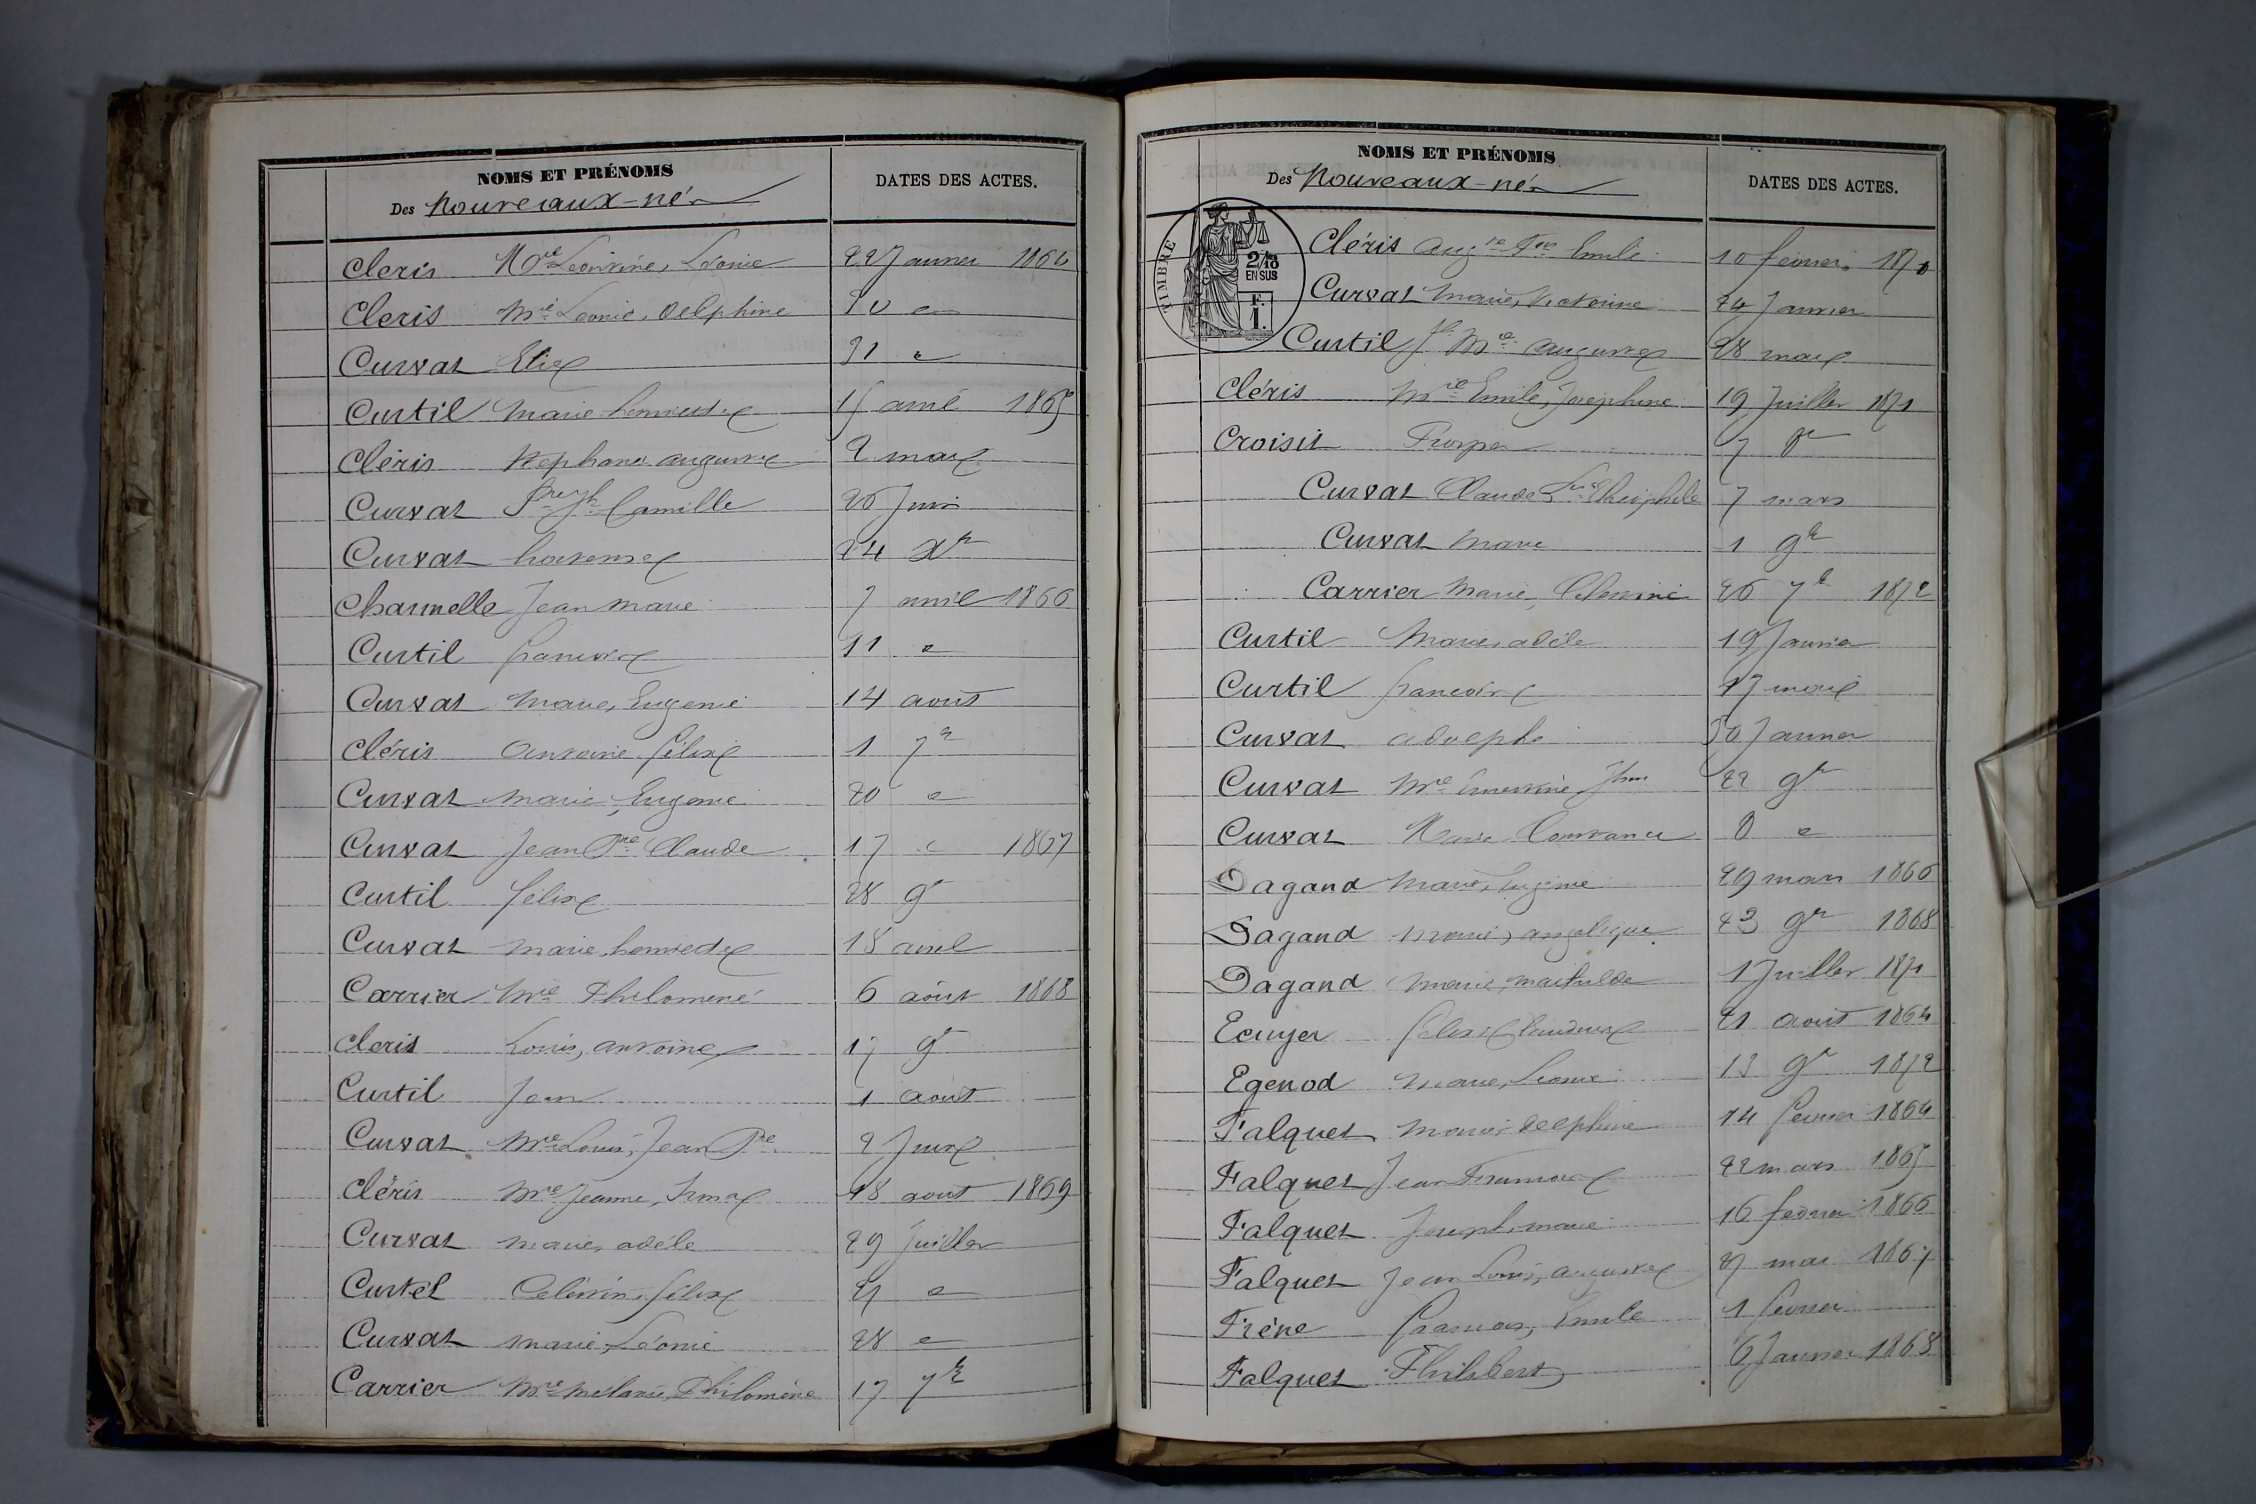 NOMS ET PRÉNOMS
Des Nouveaux-nés
DATES DES ACTES.
Cleris Mie Léontine, Léonie 22 Janvier 1864
Cleris Mie Léonie, Delphine 30 "
Curvat Elise 31 "
Curtil Marie henriette 15 avril 1865
Cléris Stephanie augustine 2 mai
Curvat Pre Jh Camille 26 Juin
Curvat hortense 24 Xr
Charmelle Jean Marie 7 avril 1866
Curtil françoise 11 "
Curvat Marie, Eugenie 14 aout
Cléris Antoine Félix 1 7r
Curvat Marie, Eugenie 20 "
Curvat Jean Pre Claude 17 " 1867
Curtil félix 28 9r
Curvat marie, henriette 18 avril
Carrier Mie Philomene 6 août 1868
Cleris Louis, antoine 17 9r
Curtil Jean 1 août
Curvat Mie Louis, Jean Pre 2 Juin
Cléris Mie Jeanne, Irma 18 aout 1869
Curvat marie, adele 29 Juillet
Curtet Celestin, félix 21 "
Curvat marie, Léonie 28 "
Carrier Mie Melanie, Philomène 17 7re
NOMS ET PRÉNOMS
Des Nouveaux-nés
DATES DES ACTES.
TIMBRE
2/10
EN SUS
F.
1.
Cléris Emile 10 février 1870
Curvat Marie, Victorine 24 Janvier
Curtil Jh Mie auguste 28 mai
Cléris Mie Emile, Josephine 19 Juillet 1871
Croisit Prosper 7
Curvat Claude Théophile 7 mars
Curvat Marie 1 9r
Carrier Marie, 26 7r 1872
Curtil Marie, adèle 19 Janvier
Curtil françoise 17 mai
Curvat adolphe 30 Janvier
Curvat Mie Ernestine 22 9r
Curvat Marie Constance 8 "
Dagand Marie, Eugénie 29 mars 1866
Dagand Marie, angelique 23 9r 1868
Dagand Marie, mathilde 1 Juillet 1871
Ecuyer félix 21 août 1864
Egenod Marie, Léonie 13 9r 1872
Falquet Marie delphine 14 février 1864
Falquet Jean François 22 mars 1865
Falquet Joseph, marie 16 fevrier 1866
Falquet Jean Louis, auguste 27 mai 1867
Frène francois, Emile 1 fevrier
Falquet Philibert 6 Janvier 1868